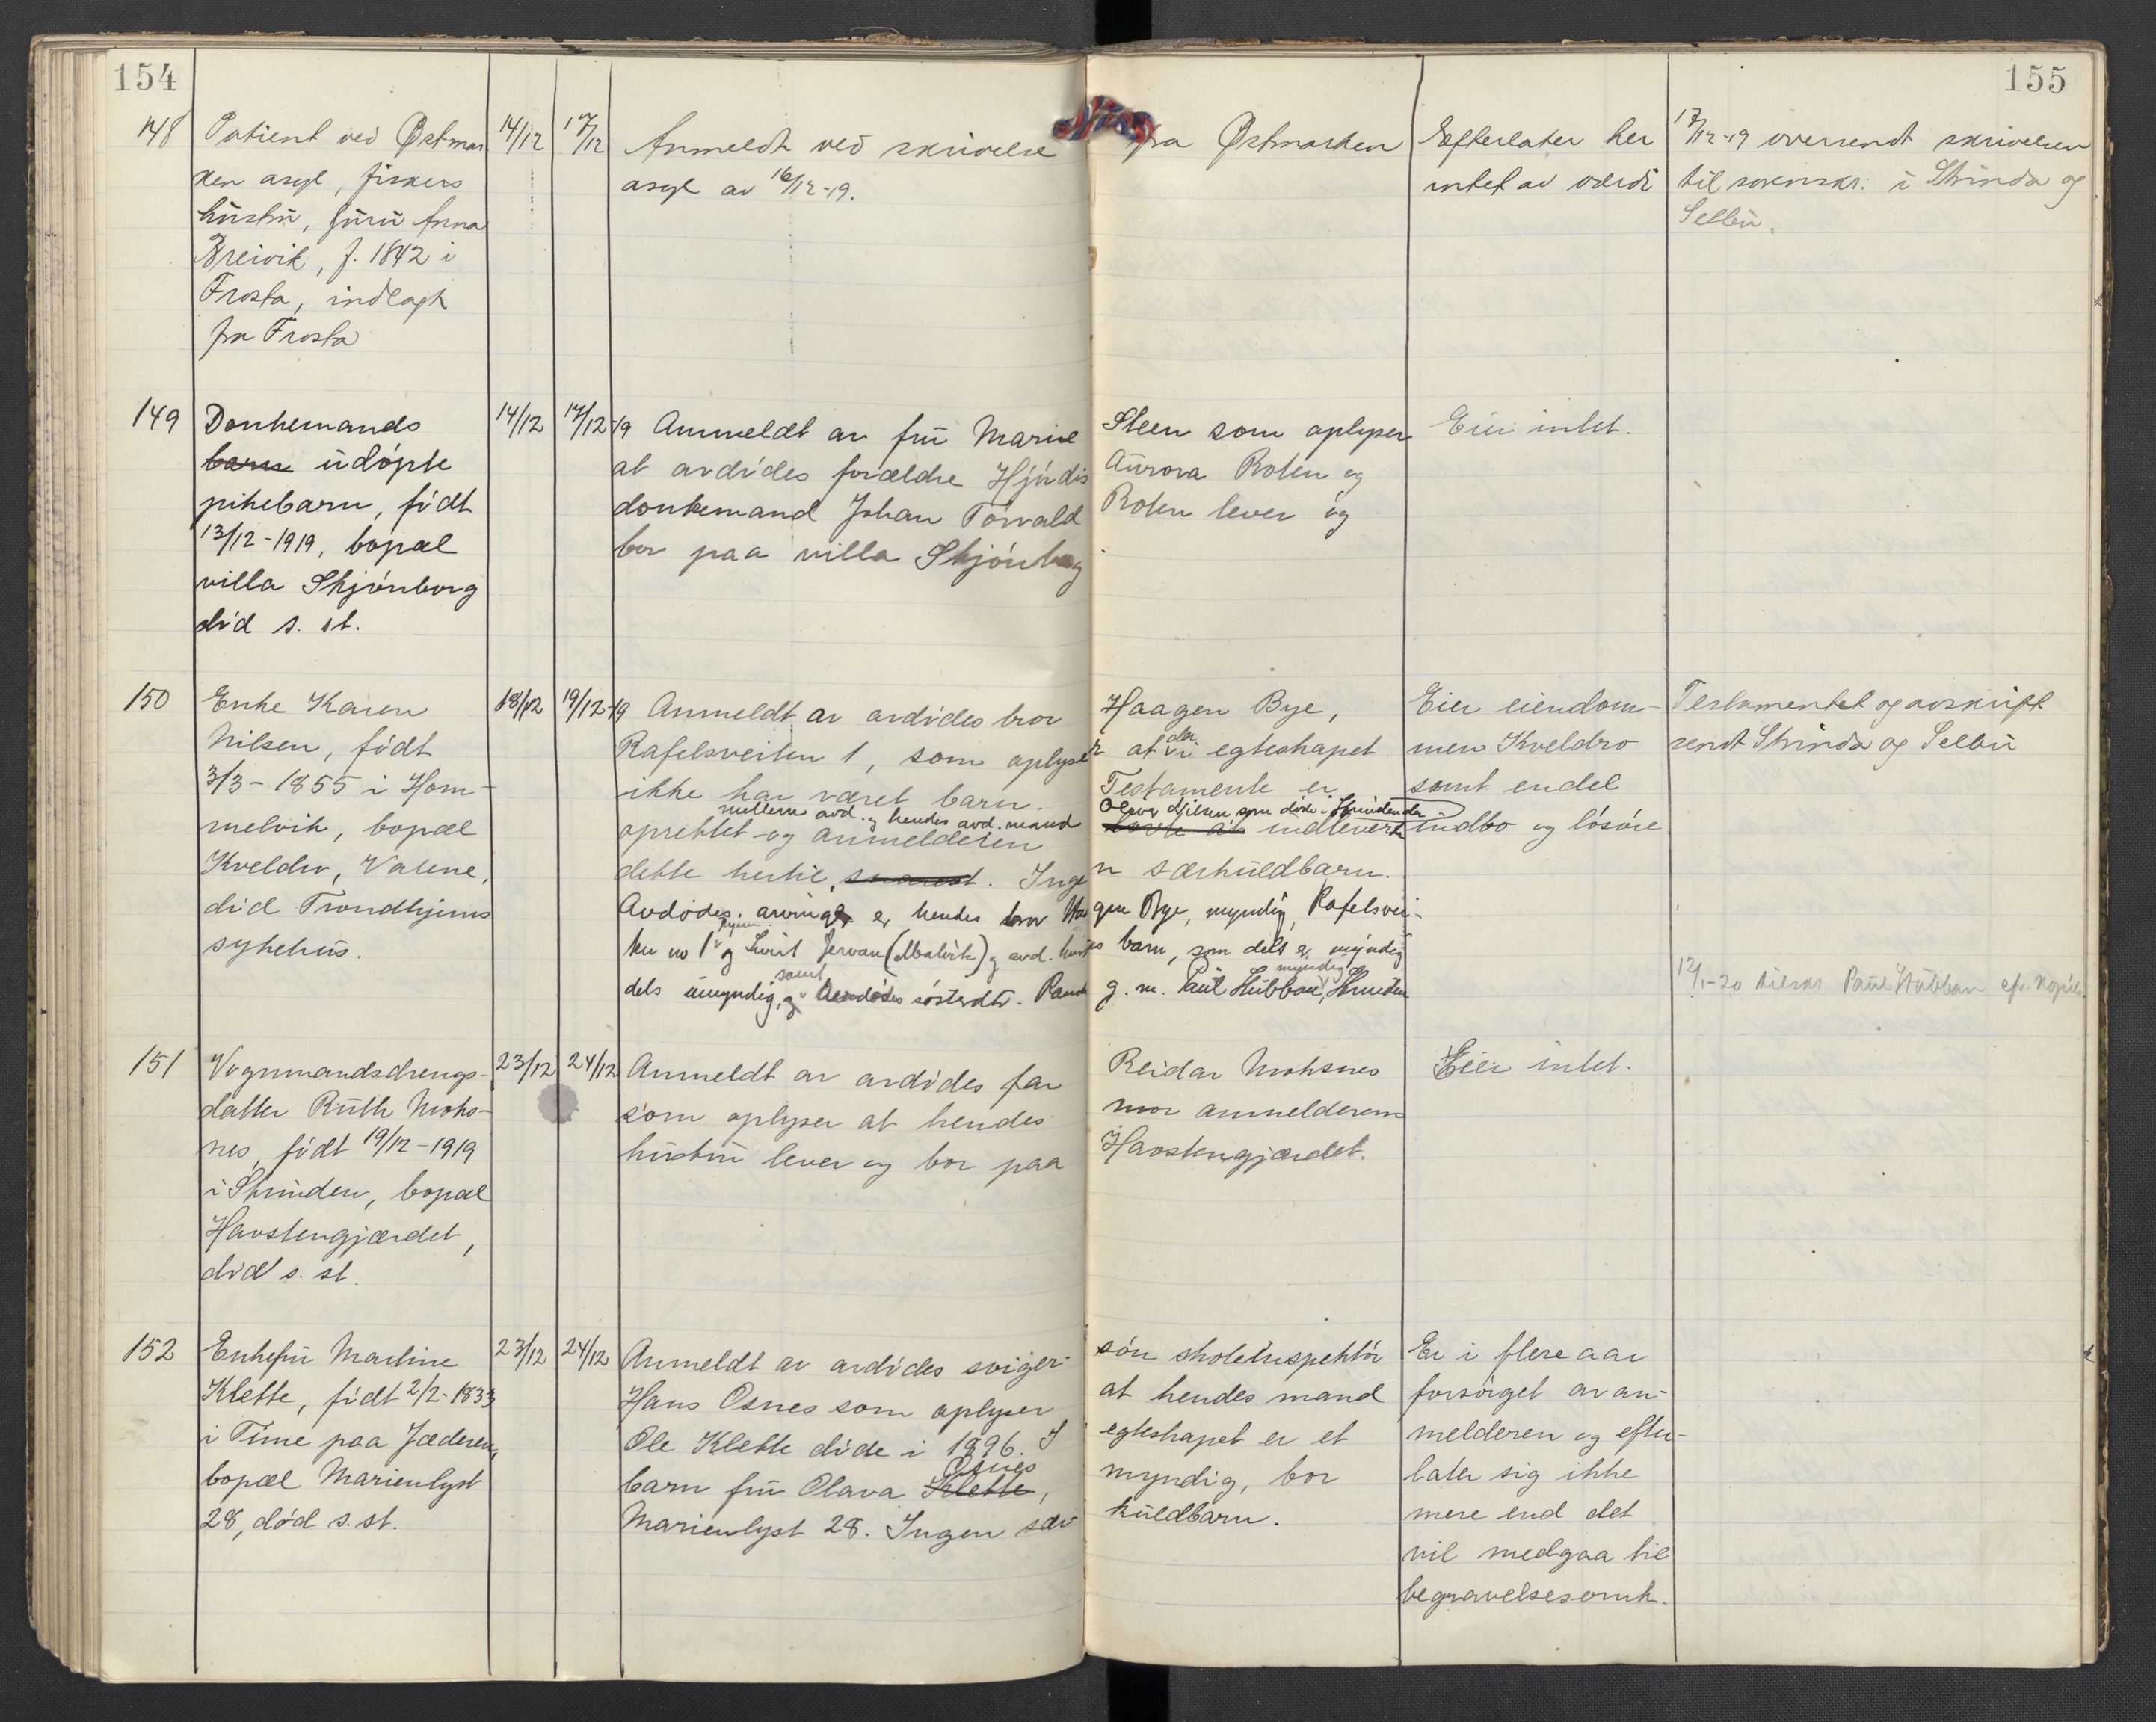 154
155
148
Patient ved Østmar
ken asyl, fiskers
hustru, Guru Anna
Breivik, f. 1842 i
Frosta, indlagt
fra Frosta
14/12
17/12
Anmeldt ved skrivelse fra Østmarken
asyl av 16/12-19.
Efterlater her
intet av værdi
17/12-19 oversendt skrivelsen
til sorenskr. i Strinda og
Selbu.
149
Donkemands
barn udøpte
pikebarn, født
13/12-1919, bopæl
villa Skjønborg
død s. st.
14/12
17/12-19
Anmeldt av fru Marie Steen som oplyser
at avdødes forældre Hjørdis Aurora Roten og
donkemand Johan Torvald Roten lever og
bor paa villa Skjønborg
Eier intet.
150
Enke Karen
Nilsen, født
3/3-1855 i Hom-
melvik, bopæl
Kveldro, Valene,
død Trondhjems
sykehus.
18/12
19/12-19
Anmeldt av avdødes bror Haagen Bye,
Rafelsveiten 1, som oplyser at der i egteskapet
ikke har været barn. Testamente er
mellem avd. og hendes avd. mand Oliver Nilsen som døde i Strinden
oprettet og anmelderen indleverte
dette hertil. snarest. Ingen særkuldbarn.
Avdødes arvinger er hendes bror Haagen Bye, myndig, Rafelsvei-
ten no 1 og Jervan (Malvik) og avd. barn, som dels er myndig
dels umyndig, og samt avdødes søsterdtr. g. m. Paul Stubban, myndig, Strinden
Eier eiendom-
men Kveldro
samt endel
indbo og løsøre
Testamentet og avskrift
sendt Strinda og Selbu
12/1-20 tilskr. Paul Stubban efr. kopieb.
151
Vognmandsdrengs-
datter Ruth Mohs-
nes, født 19/12-1919
i Strinden, bopæl
Havstengjærdet,
død s. st.
23/12
24/12
Anmeldt av avdødes far Reidar Mohsnes
som oplyser at hendes mor anmelderens
hustru lever og bor paa Havstengjærdet.
Eier intet.
152
Enkefru Martine
Klette, født 2/2-1833
i Time paa Jæderen,
bopæl Marienlyst
28, død s. st.
23/12
24/12
Anmeldt av avdødes sviger- søn skoleinspektør
Hans Osnes som oplyser at hendes mand
Ole Klette døde i 1896. I egteskapet er et
barn fru Olava Klette, Osnes myndig, bor
Marienlyst 28. Ingen sær kuldbarn.
Er i flere aar
forsørget av an-
melderen og efter-
later sig ikke
mere end det
vil medgaa til
begravelsesomk.